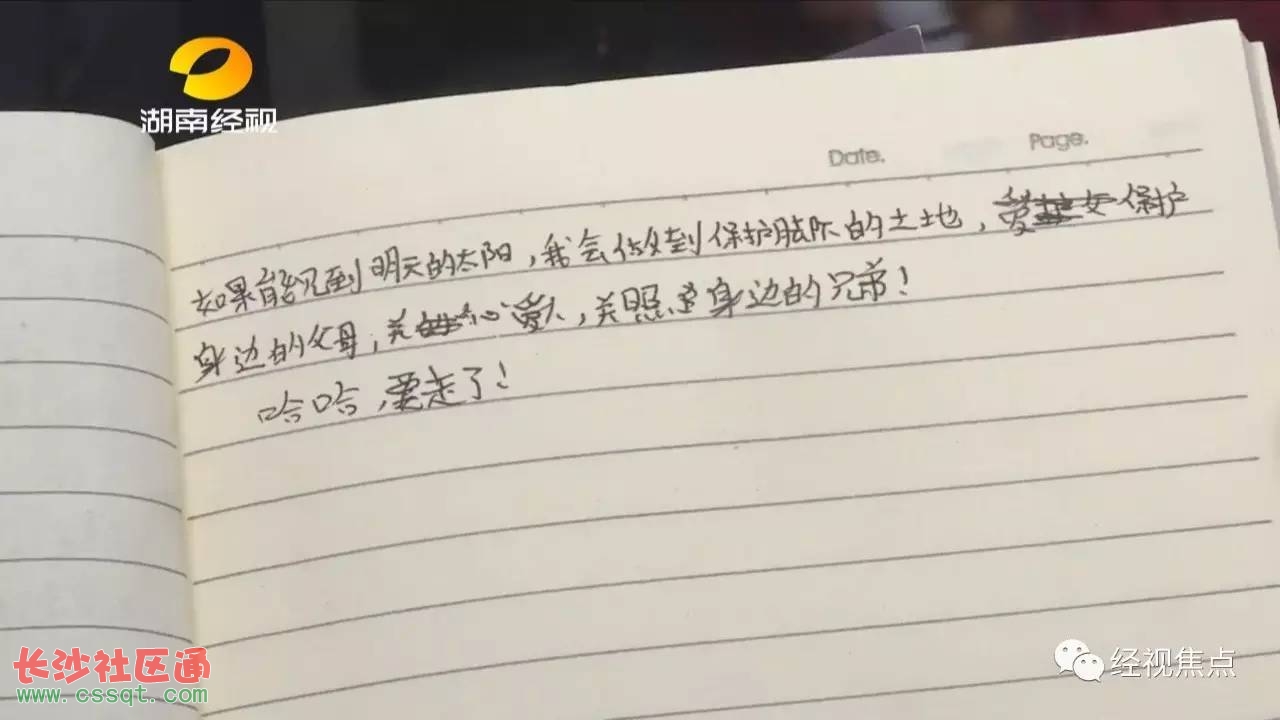 湖南经视
Date. Page.
如果能见到明天的太阳,我会做到保护脚下的土地,保护
身边的父母,关心爱人,关照身边的兄弟!
哈哈,要走了!
长沙社区通
www.cssqt.com
经视焦点